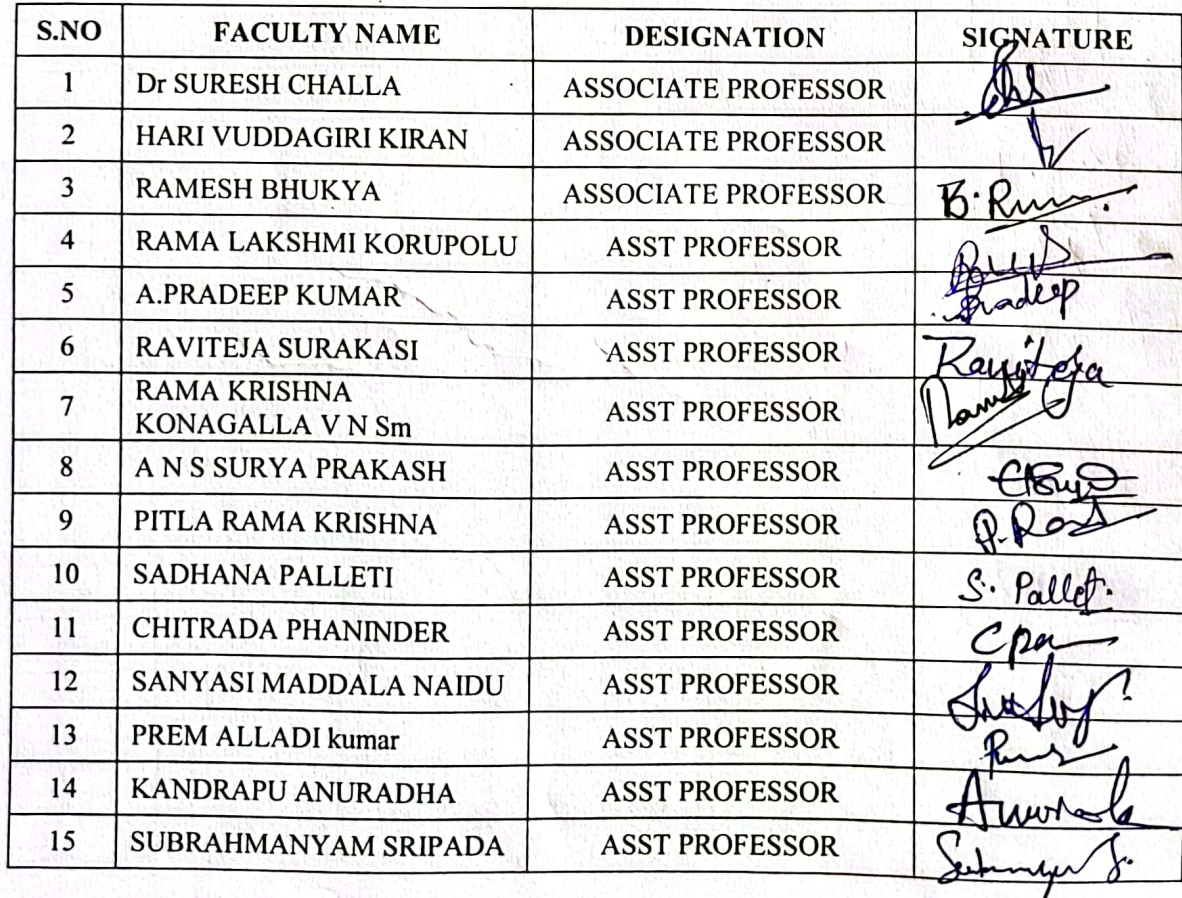 S.NO FACULTY NAME DESIGNATION SIGNATURE
1 Dr SURESH CHALLA ASSOCIATE PROFESSOR
2 HARI VUDDAGIRI KIRAN ASSOCIATE PROFESSOR
3 RAMESH BHUKYA ASSOCIATE PROFESSOR
4 RAMA LAKSHMI KORUPOLU ASST PROFESSOR
5 A.PRADEEP KUMAR ASST PROFESSOR Pradeep
6 RAVITEJA SURAKASI ASST PROFESSOR Raviteja
RAMA KRISHNA
7 KONAGALLA V N Sm ASST PROFESSOR
8 A N S SURYA PRAKASH ASST PROFESSOR
9 PITLA RAMA KRISHNA ASST PROFESSOR
10 SADHANA PALLETI ASST PROFESSOR S. Pallet.
11 CHITRADA PHANINDER ASST PROFESSOR
12 SANYASI MADDALA NAIDU ASST PROFESSOR
13 PREM ALLADI kumar ASST PROFESSOR
14 KANDRAPU ANURADHA ASST PROFESSOR
15 SUBRAHMANYAM SRIPADA ASST PROFESSOR